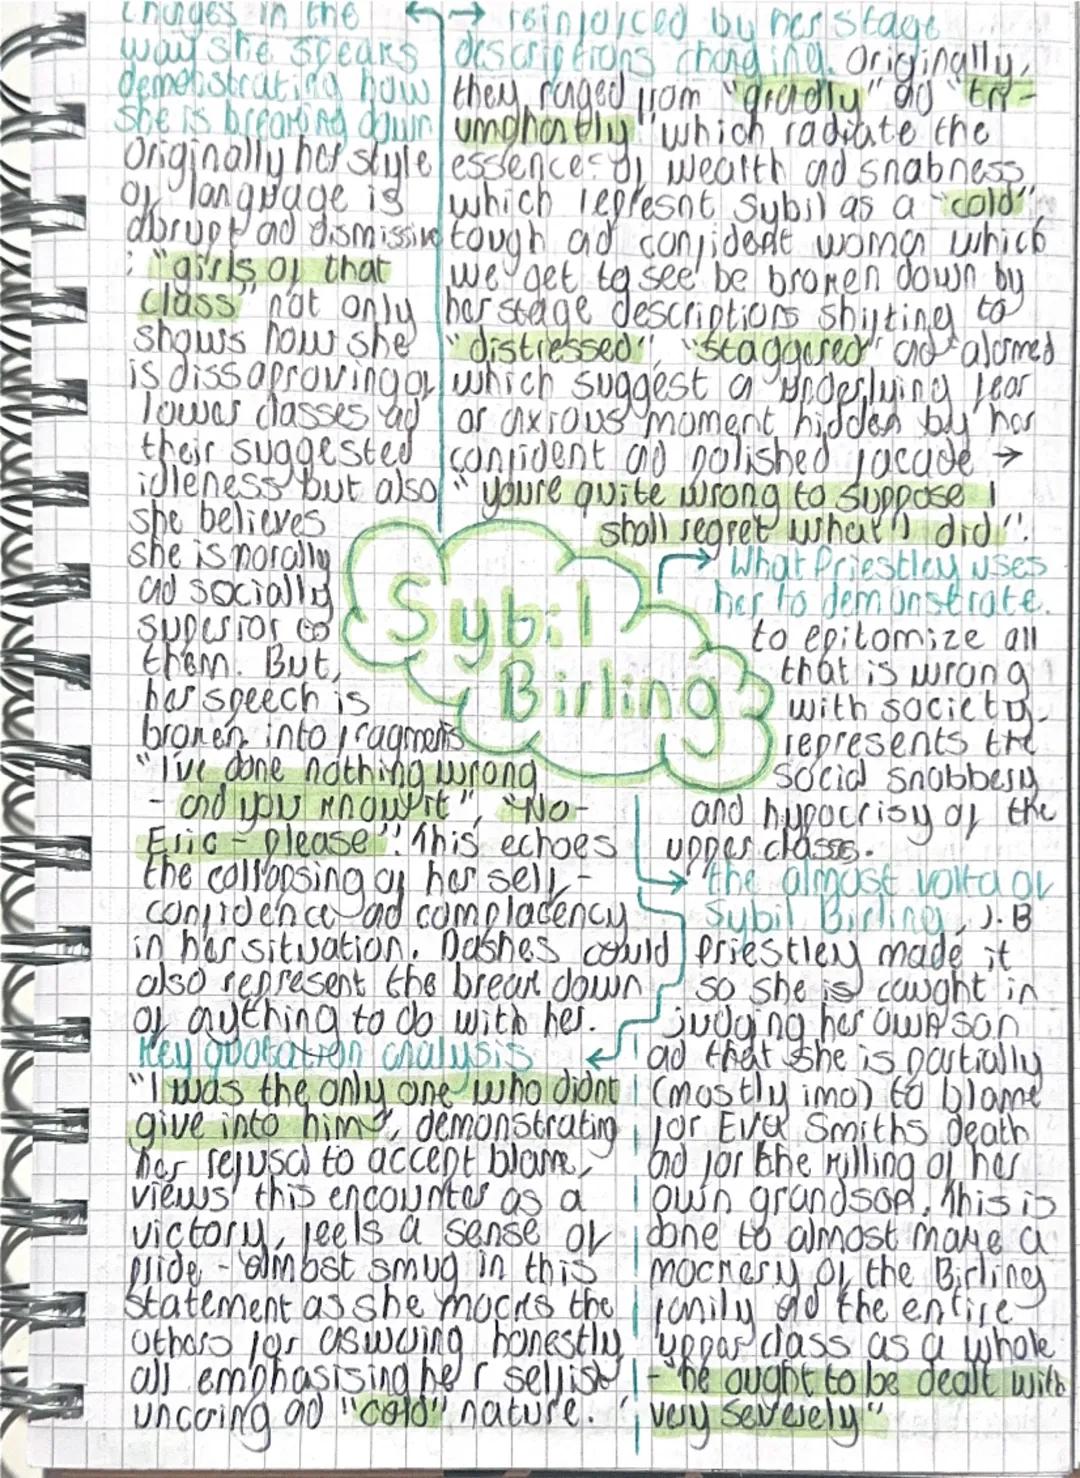 changes in the
way she speaks
demonstrating how
she is breaking down
Originally her style
of language is
abrupt ad dismissive
: "girls of that
class" not only
shows how she
is dissaproving of
lower classes ad
their suggested
idleness but also
she believes
she is morally
ad socially
superior to
them. But,
her speech is
broken into fragments
"I've done nothing wrong
- and you know it", "No-
Eric - please". This echoes
the collapsing of her self-
confidence ad complacency
in her situation. Dashes could
also represent the break down
of anything to do with her.
→ reinforced by her stage
descriptions changing. Originally,
they raged from "grandly" ad "tri-
umphantly" which radiate the
essence of wealth ad snabness
which represnt Sybil as a "cold",
tough ad confident woman which
we get to see be broken down by
her stage descriptions shifting to
"distressed", "staggered" ad "alarmed
which suggest a underlying fear
or anxious moment hidden by her
confident ad polished facade →
"youre quite wrong to suppose I
shall regret what I did".
Sybil
Birling
→ What Priestley uses
her to demonstrate.
to epitomize all
that is wrong
with society.
represents the
social snobbery
and hypocrisy of the
upper classes.
→ the almost volta of
Sybil Birling, J.B
Priestley made it
so she is caught in
judging her own son
ad that she is partially
(mostly imo) to blame
for Eva Smiths death
ad for the killing of her
own grandson. This is
done to almost make a
mockery of the Birling
family ad the entire
upper class as a whole
- "he ought to be dealt with
very severely"
Key quotation analysis
"I was the only one who didnt
give into him", demonstrating
her refusal to accept blame,
views this encounter as a
victory, feels a sense of
pride - almost smug in this
statement as she mocks the
others for aswering honestly
all emphasising her selfish
uncaring ad "cold" nature.